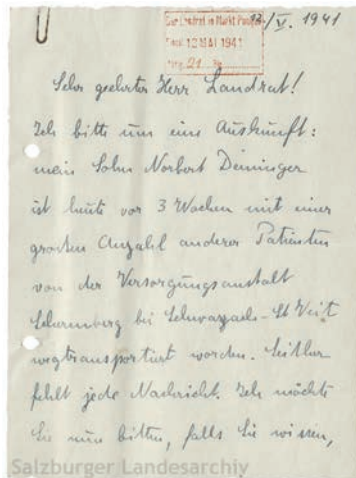 12/V. 1941
Der Landrat in Markt Pongau
12 MAI 1941
21
Sehr geehrter Herr Landrat!
Ich bitte um eine Auskunft:
mein Sohn Norbert Deininger
ist heute vor 3 Wochen mit einer
grossen Anzahl anderer Patienten
von der Versorgungsanstalt
Schernberg bei Schwarzach-St Veit
wegtransportiert worden. Seither
fehlt jede Nachricht. Ich möchte
Sie nun bitten, falls Sie wissen,
Salzburger Landesarchiv